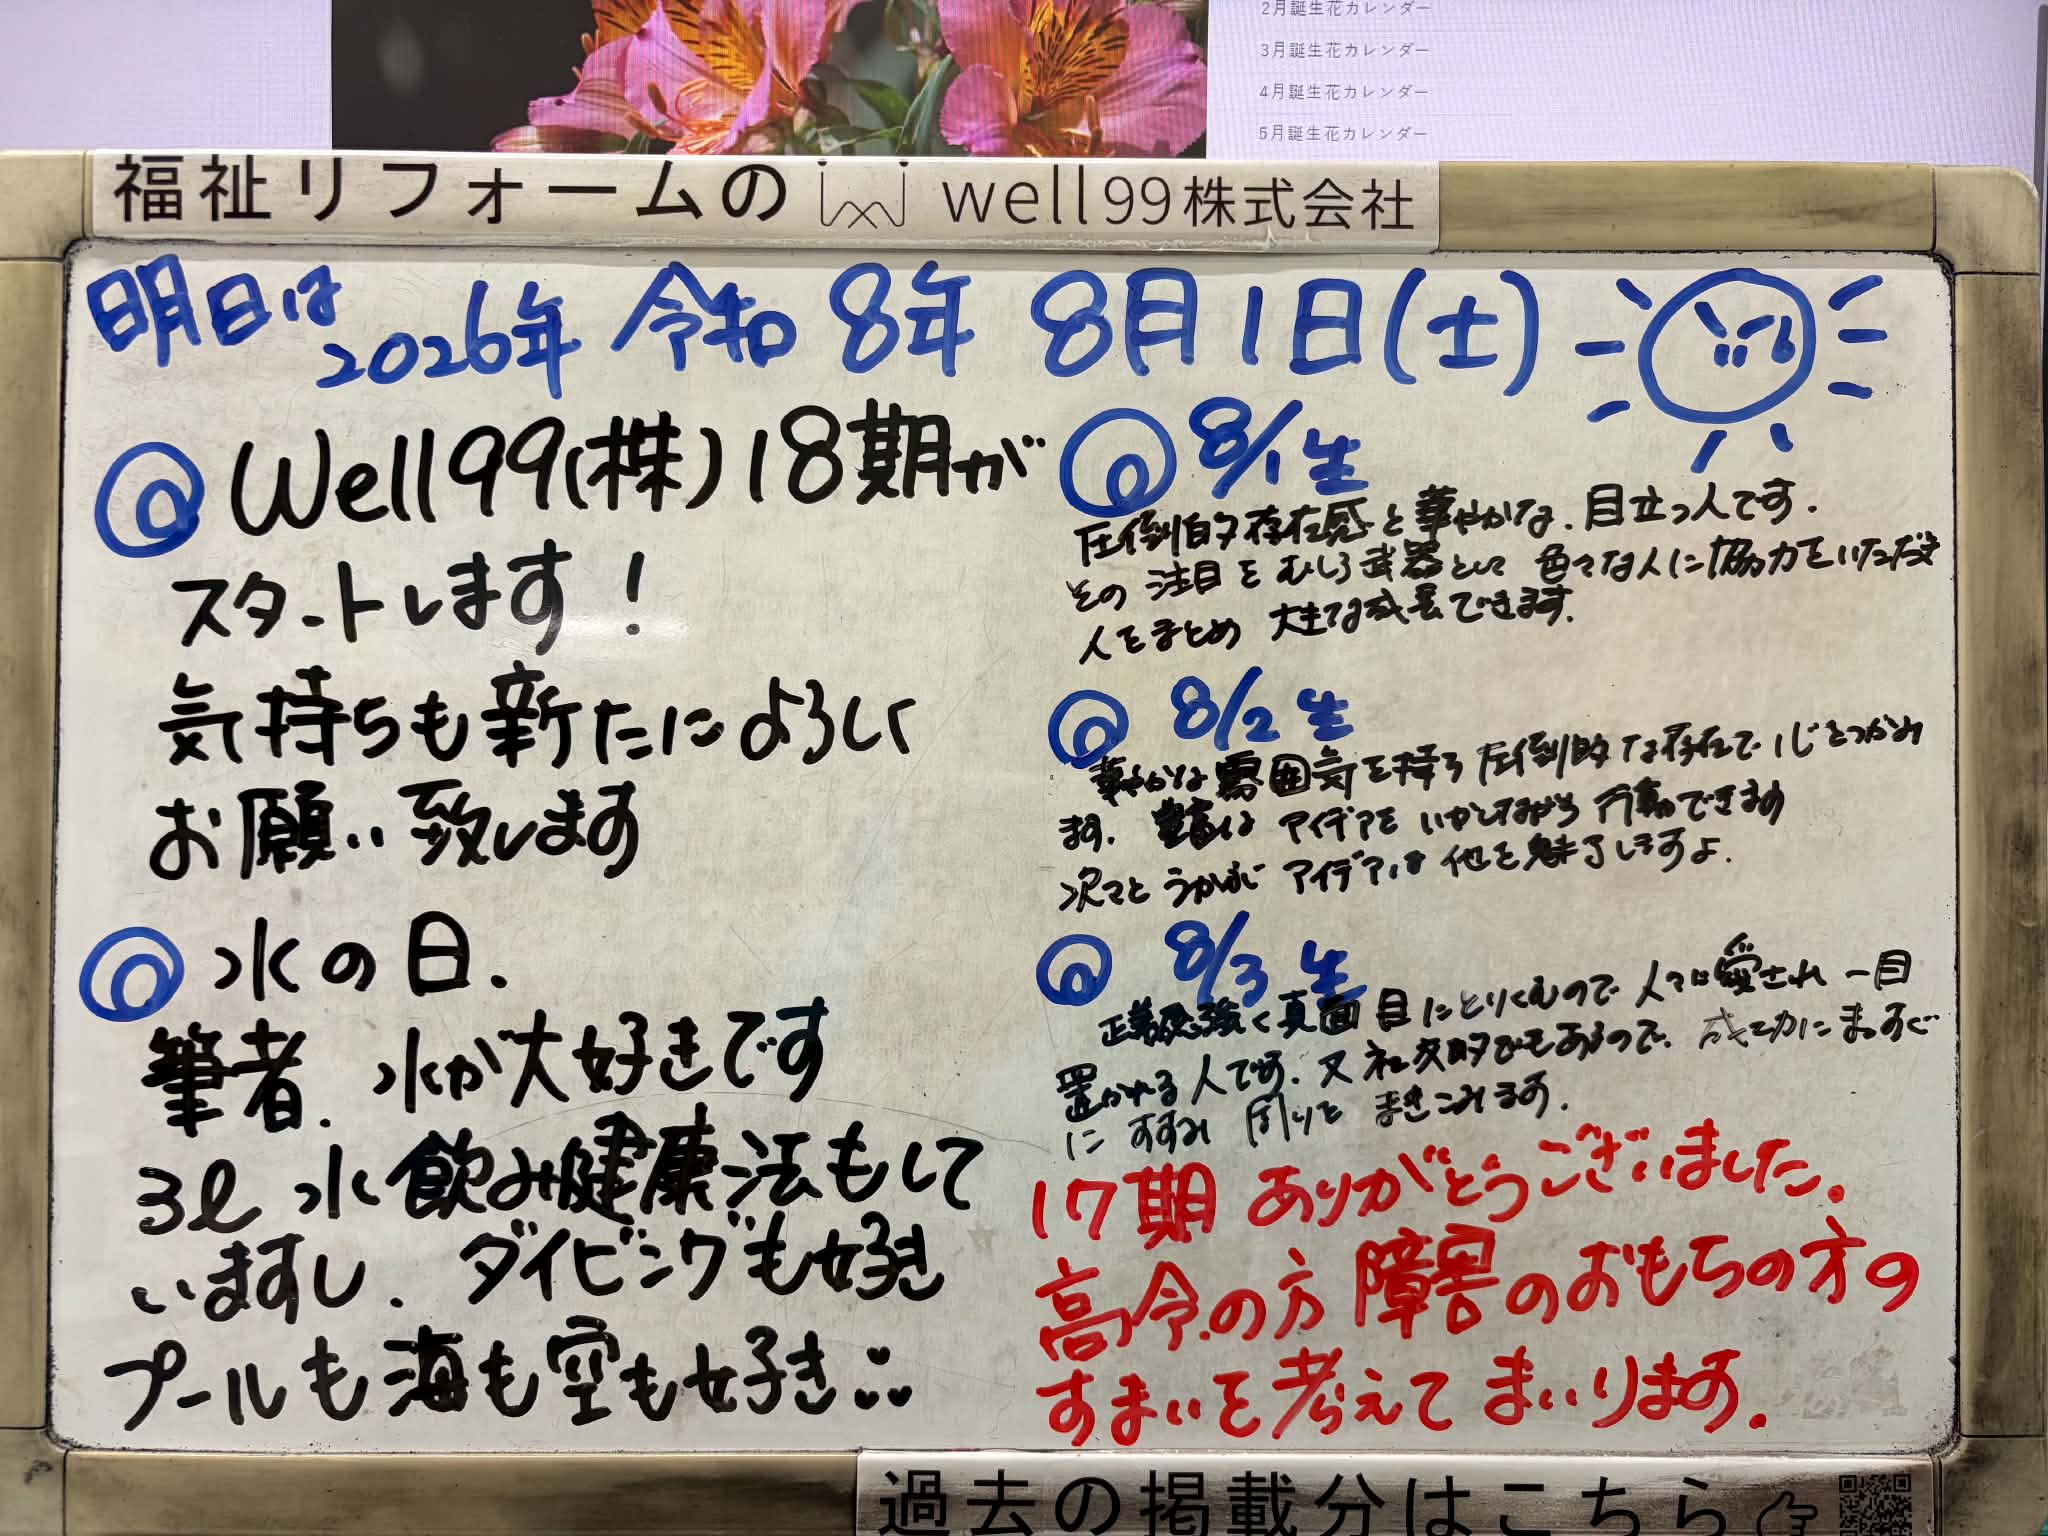 2月誕生花カレンダー
3月誕生花カレンダー
4月誕生花カレンダー
5月誕生花カレンダー
福祉リフォームの well99株式会社
明日は 2026年 令和8年 8月1日(土)
Well99(株)18期が
スタートします!
気持ちも新たによろしく
お願い致します
水の日.
筆者.水が大好きです
3ℓ水飲み健康法もして
いますし.ダイビングも好き
プールも海も空も好き
8/1生
圧倒的存在感と華やかな.目立つ人です.
その注目をむしろ武器として色々な人に協力をいただき
人をまとめ 大きな成長できます.
8/2生
華やかな雰囲気を持ち圧倒的な存在で心をつかみ
ます. アイデアをいかしながら行動できます
次々とうかぶアイデアは他を魅了しますよ.
8/3生
正義感強く真面目にとりくむので人々に愛され一目
置かれる人です.又社交的でもあるので.成功にまっすぐ
にすすみ周りをまきこみます.
17期ありがとうございました.
高令の方障害のおもちの方の
すまいを考えてまいります.
過去の掲載分はこちら